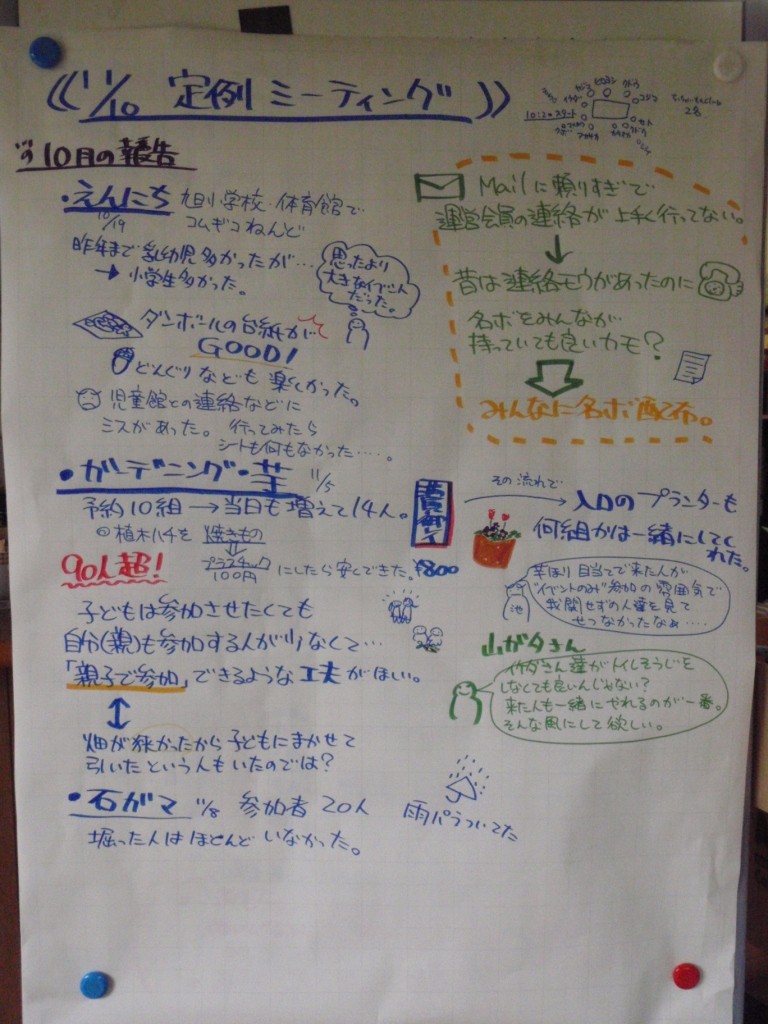 11/10 定例ミーティング
10:20スタート
2名
10月の報告
・えんにち 旭小学校・体育館で
10/19 コムギコねんど
昨年まで乳幼児多かったが…
→ 小学生多かった。
思ったより
大きなイベント
だった。
ダンボールの台紙が
GOOD!
どんぐりなども楽しかった。
児童館との連絡などに
ミスがあった。行ってみたら
シートも何もなかった……。
Mailに頼りすぎで
運営会員の連絡が上手く行ってない。
↓
昔は連絡モウがあったのに
名ボをみんなが
持っていても良いカモ?
みんなに名ボ配布。
・ガーデニング・芋 11/5
予約10組→当日も増えて14人。
植木ハチを 焼きもの
プラスチック
100円 にしたら安くできた。¥800
90人超!
その流れで
→ 入口のプランターも
何組かは一緒にしてく
れた。
子どもは参加させたくても
自分(親)も参加する人が少なくて…
「親子で参加」できるような工夫がほしい。
芋ほり目当てで来た人が
"イベントのみ"参加の雰囲気で
我関せずの人達を見て
せつなかったなぁ…
池
山がタさん
イケダさん達がトイレそうじを
しなくても良いんじゃない?
来た人も一緒にやれるのが一番。
そんな風にして欲しい。
畑が狭かったから子どもにまかせて
引いたという人もいたのでは?
・石ガマ 11/8 参加者 20人
掘った人はほとんどいなかった。
雨パラついてた